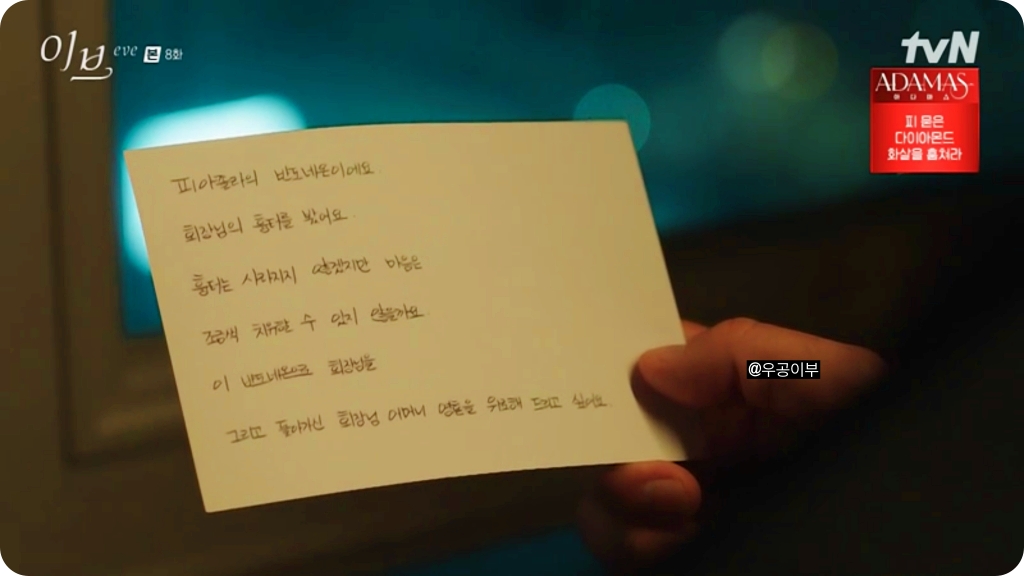 이브 eve 본 8화
tvN
ADAMAS
아다마스
피 묻은
다이아몬드
화살을 훔쳐라
피아졸라의 반도네온이에요.
회장님의 흉터를 봤어요.
흉터는 사라지지 않겠지만 마음은
조금씩 치유할 수 있지 않을까요.
이 반도네온으로 회장님을
그리고 돌아가신 회장님 어머니 영혼을 위로해 드리고 싶어요.
@우공이부